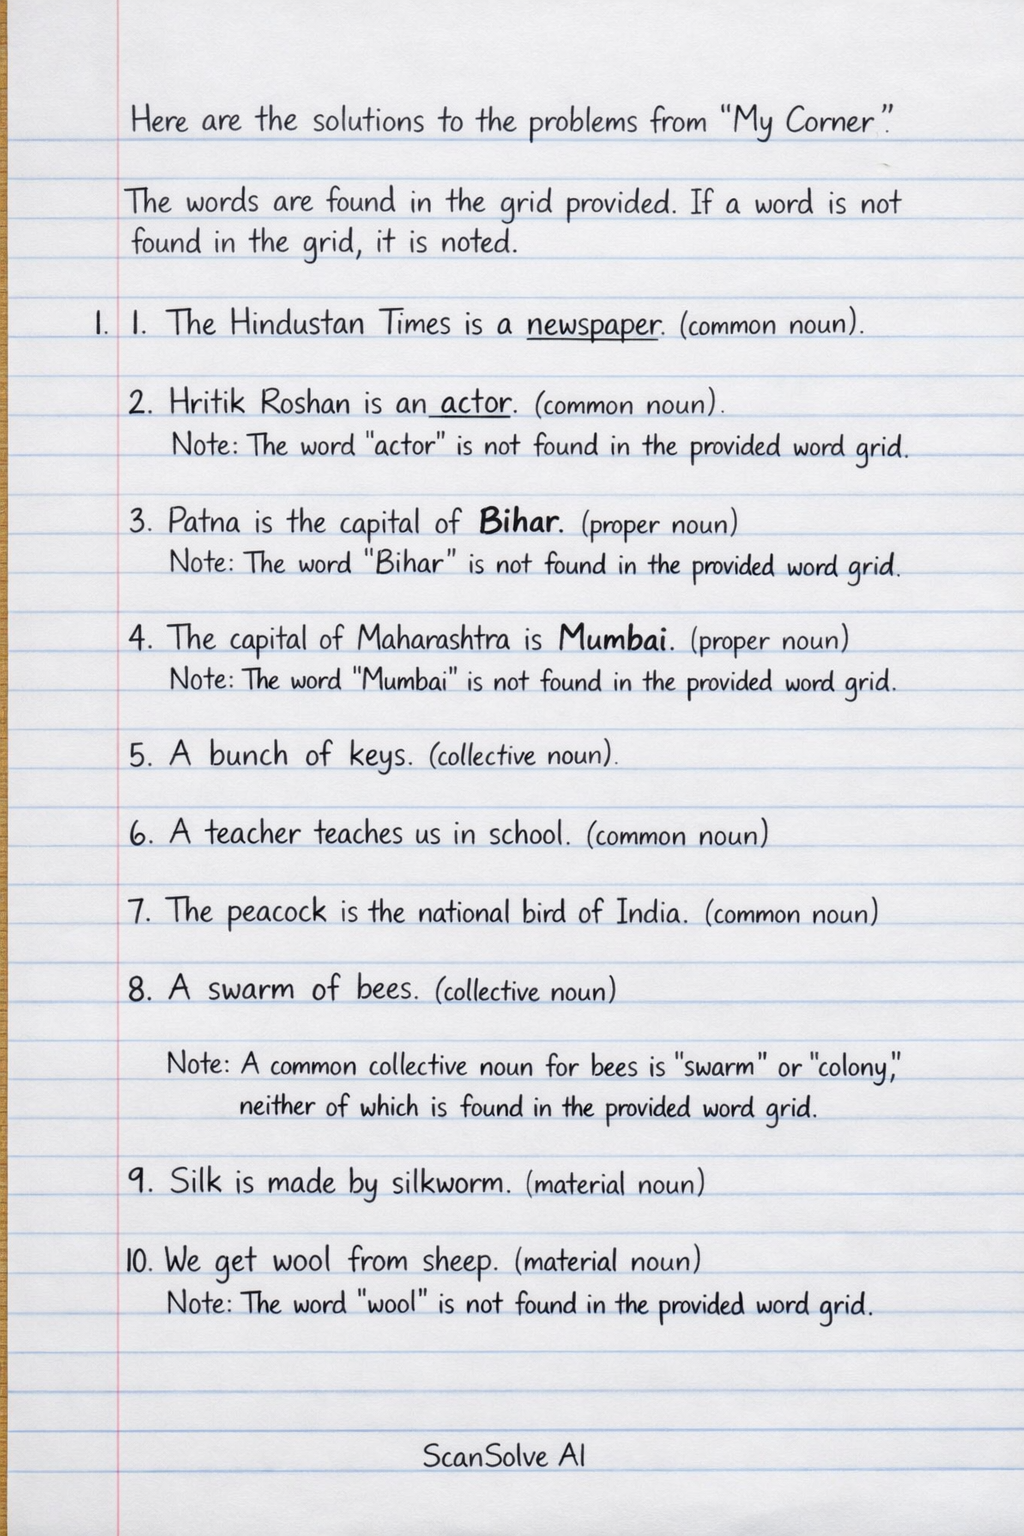 Here are the solutions to the problems from "My Corner".
The words are found in the grid provided. If a word is not
found in the grid, it is noted.
1. 1. The Hindustan Times is a newspaper. (common noun).
2. Hritik Roshan is an actor. (common noun).
Note: The word "actor" is not found in the provided word grid.
3. Patna is the capital of Bihar. (proper noun)
Note: The word "Bihar" is not found in the provided word grid.
4. The capital of Maharashtra is Mumbai. (proper noun)
Note: The word "Mumbai" is not found in the provided word grid.
5. A bunch of keys. (collective noun).
6. A teacher teaches us in school. (common noun)
7. The peacock is the national bird of India. (common noun)
8. A swarm of bees. (collective noun)
Note: A common collective noun for bees is "swarm" or "colony,"
neither of which is found in the provided word grid.
9. Silk is made by silkworm. (material noun)
10. We get wool from sheep. (material noun)
Note: The word "wool" is not found in the provided word grid.
ScanSolve AI